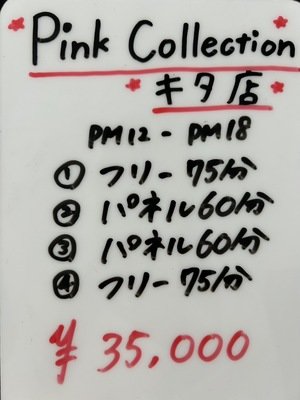 Pink Collection
キタ店
PM12 - PM18
① フリー 75分
② パネル 60分
③ パネル 60分
④ フリー 75分
¥ 35,000